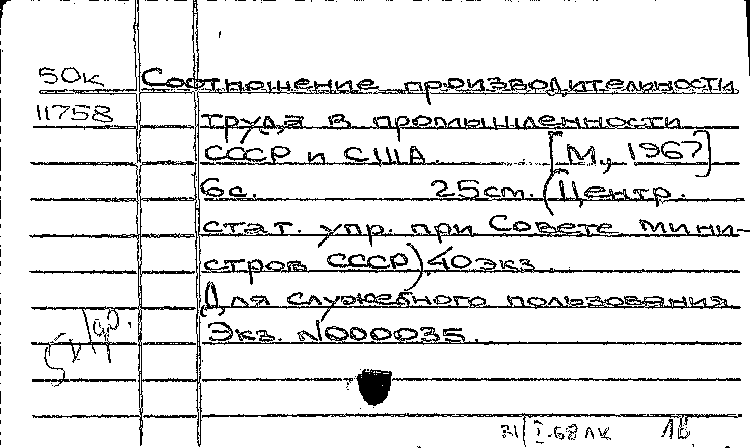 50к Соотношение производительности
11758 труда в промышленности
СССР и США. [М., 1967]
6с. 25см. (Центр.
стат. упр. при Совете Мини-
стров СССР) 40экз.
Для служебного пользования
Экз. №000035.
31/I.68 ЛК 1В